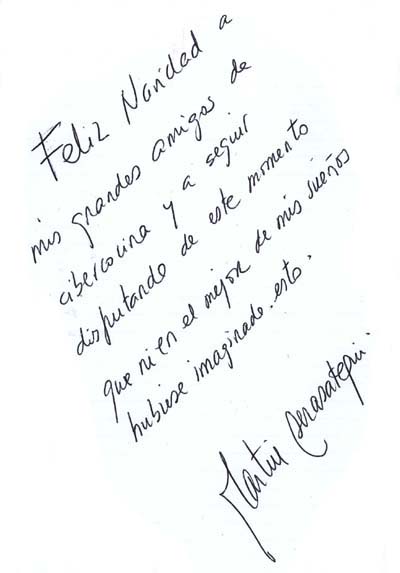 Feliz Navidad a
mis grandes amigos de
cibercocina y a seguir
disfrutando de este momento
que ni en el mejor de mis sueños
hubiese imaginado esto.
Martin Berasategui.